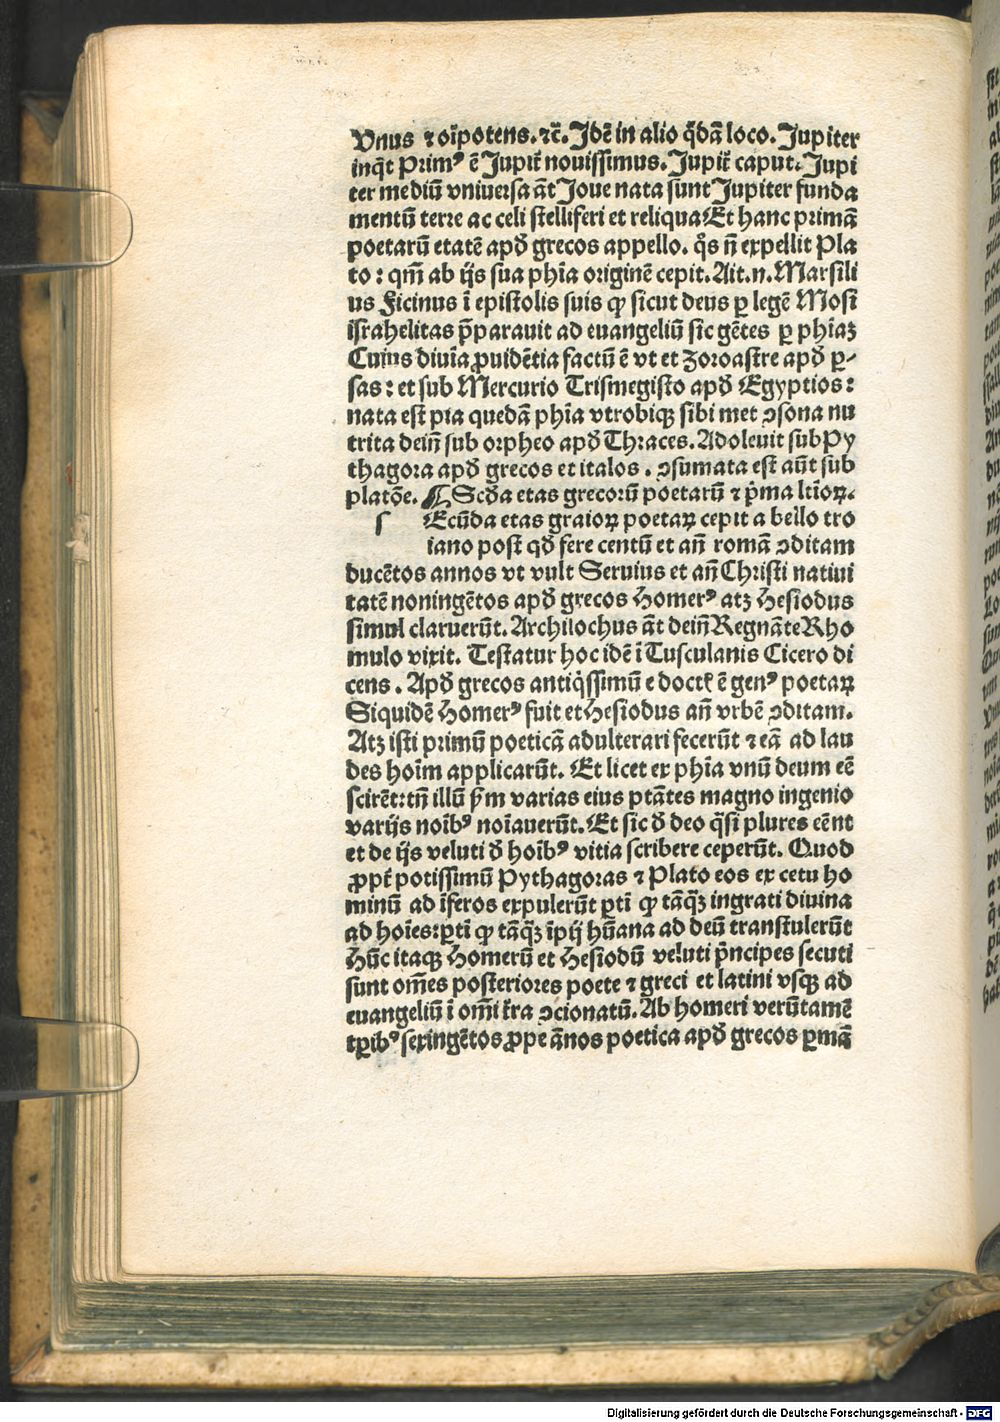 Vnus ⁊ oi͞potens. ⁊c̃. Idē in alio q̇dā loco. Jupiter
inq̇t Primꝰ ē Jupit̃ nouissimus. Jupit̃ caput. Jupi
ter mediū vniuersa āt Joue nata sunt Jupiter funda
mentū terre ac celi stelliferi et reliqua Et hanc primā
poetarū etatē apđ grecos appello. q̇s ñ expellit Pla
to: qm̄ ab ijs sua phīa originē cepit. Ait .n. Marsili
us Ficinus ī epistolis suis ꝙ sicut deus ꝑ legē Mosi
israhelitas p̄parauit ad euangeliū sic gētes ꝑ phīaꝫ
Cuius diuīa ꝓuidētia factū ē vt et zoroastre apđ ꝑ-
sas: et sub Mercurio Trismegisto apđ Egyptios:
nata est pia quedā phīa vtrobiqꝫ sibi met ꝯsona nu
trita dein̄ sub orpheo apđ Thraces. Adoleuit sub Py
thagora apđ grecos et italos. ꝯsumata est aūt sub
platōe. ¶ Scđa etas grecorū poetarū ⁊ p̄ma ltīoꝝ.
s Ecūda etas graioꝝ poetaꝝ cepit a bello tro
iano post qđ fere centū et añ romā ꝯditam
ducētos annos vt vult Seruius et añ Christi natiui
tatē noningētos apđ grecos Homerꝰ atꝫ Hesiodus
simul claruerūt. Archilochus āt dein̄ Regnāte Rho
mulo vixit. Testatur hoc idē ī Tusculanis Cicero di
cens. Apđ grecos antiq̇ssimū e doctꝭ ē genꝰ poetaꝝ
Siquidē Homerꝰ fuit et Hesiodus añ vrbē ꝯditam.
Atꝫ isti primū poeticā adulterari fecerūt ⁊ eā ad lau
des hoīm applicarūt. Et licet ex phīa vnū deum eē
scirēt: tñ illū ẜm varias eius ptātes magno ingenio
varijs noībꝰ noīauerūt. Et sic đ deo q̄si plures eēnt
et de ijs veluti đ hoībꝰ vitia scribere ceperūt. Quod
ꝓpt̃ potissimū Pythagoras ⁊ Plato eos ex cetu ho
minū ad īferos expulerūt ꝑtī ꝙ tāq̄ꝫ ingrati diuina
ad hoīes: ꝑtī ꝙ tāq̄ꝫ īpij hūana ad deū transtulerūt
Hūc itaqꝫ Homerū et Hesiodū veluti p̄ncipes secuti
sunt om̄es posteriores poete ⁊ greci et latini vsqꝫ ad
euangeliū ī om̄i t̃ra ꝯcionatū. Ab homeri verūtamē
tꝑibꝰ sexingētos ꝓpe ānos poetica apđ grecos ꝑmā
Digitalisierung gefördert durch die Deutsche Forschungsgemeinschaft - DFG